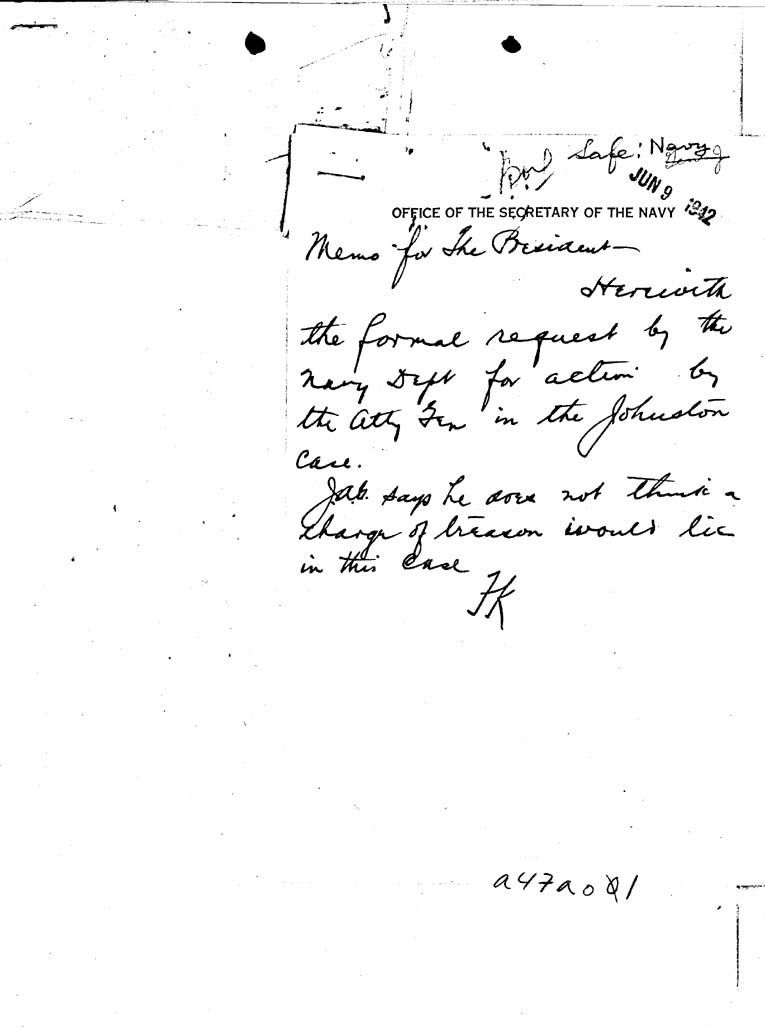 Safe: Navy
JUN 9 1942
OFFICE OF THE SECRETARY OF THE NAVY
Memo for The President—
Herewith
the formal request by the
Navy Dept for action by
the Atty Gen in the Johnston
Case.
J.A.G. says he does not think a
charge of treason would lie
in this case
FK
a47a001